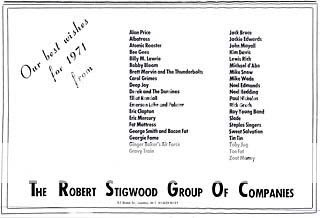 Our best wishes
for 1971
from
Alan Price
Albatross
Atomic Rooster
Bee Gees
Billy M. Lowrie
Bobby Bloom
Brett Marvin and The Thunderbolts
Carol Grimes
Deep Joy
Derek and the Dominos
Elliot Randall
Emerson Lake and Palmer
Eric Clapton
Eric Mercury
Fat Mattress
George Smith and Bacon Fat
Georgie Fame
Ginger Baker's Air Force
Gravy Train
Jack Bruce
Jackie Edwards
John Mayall
Kim Davis
Lewis Rich
Michael d'Abo
Mike Snow
Mike Wade
Noel Edmunds
Noel Redding
Paul Nicholas
Rick Grech
Roy Young Band
Slade
Staples Singers
Sweet Salvation
Tin Tin
Toby Jug
Toe Fat
Zoot Money
THE ROBERT STIGWOOD GROUP OF COMPANIES